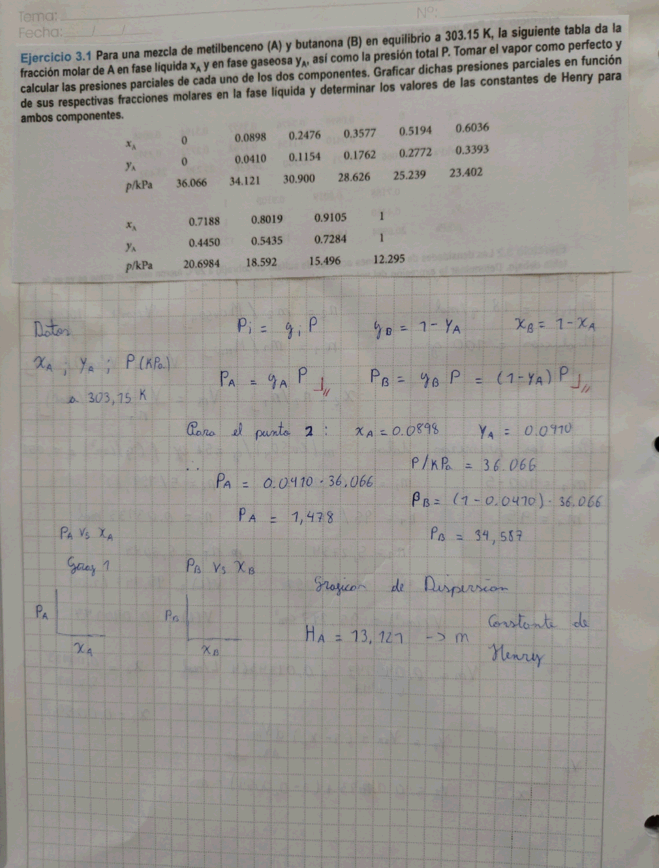 Tema:
Nº:
Fecha:
Ejercicio 3.1 Para una mezcla de metilbenceno (A) y butanona (B) en equilibrio a 303.15 K, la siguiente tabla da la
fracción molar de A en fase líquida xA y en fase gaseosa yA, así como la presión total P. Tomar el vapor como perfecto y
calcular las presiones parciales de cada uno de los dos componentes. Graficar dichas presiones parciales en función
de sus respectivas fracciones molares en la fase líquida y determinar los valores de las constantes de Henry para
ambos componentes.
xA 0 0.0898 0.2476 0.3577 0.5194 0.6036
yA 0 0.0410 0.1154 0.1762 0.2772 0.3393
p/kPa 36.066 34.121 30.900 28.626 25.239 23.402
xA 0.7188 0.8019 0.9105 1
yA 0.4450 0.5435 0.7284 1
p/kPa 20.6984 18.592 15.496 12.295
Datos Pi = yi P yB = 1 - yA xB = 1 - xA
xA ; yA ; P(KPa)
a 303,15 K
PA = yA P PB = yB P = (1-yA) P
Para el punto 2 : xA = 0.0898 yA = 0.0410
P/KPa = 36.066
∴ PA = 0.0410 · 36,066
PB = (1 - 0.0410) · 36.066
PA = 1,478
PB = 34,587
PA Vs xA
PB Vs xB
Grafican de Dispersion
PA
xA
PB
xB
HA = 13,121 -> m Constante de
Henry